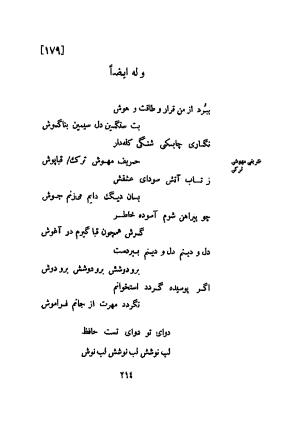 [۱۷۹]
وله ایضاً
ببرد از من قرار و طاقت و هوش
بت سنگین دل سیمین بناگوش
نگاری چابکی شنگی کله‌دار
حریف مهوش ترک/ قباپوش
ظریفی مهوشی
ترکی
ز تاب آتش سودای عشقش
بسان دیگ دایم می‌زنم جوش
چو پیراهن شوم آسوده خاطر
گرش همچون قبا گیرم در آغوش
دل و دینم دل و دینم ببردست
برو دوشش برو دوشش برو دوش
اگر پوسیده گردد استخوانم
نگردد مهرت از جانم فراموش
دوای تو دوای تست حافظ
لب نوشش لب نوشش لب نوش
۲۶۴